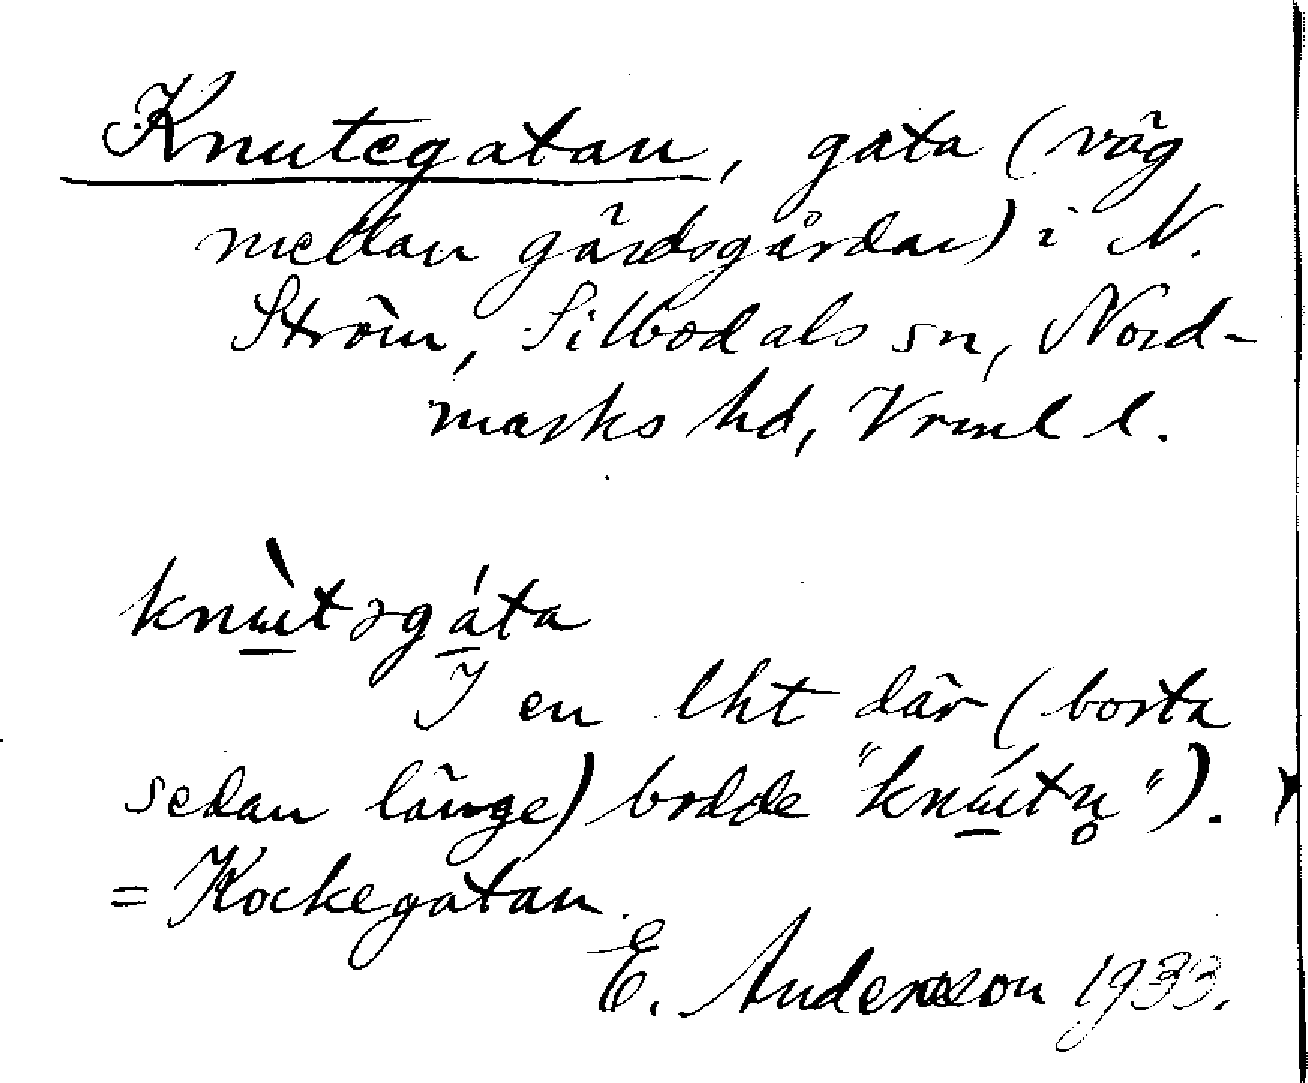 Knutegatan, gata (väg
medan gärdsgårdar) i N.
Ström, Silbodals sn, Nord-
marks hd, Vrml l.
knɯ̀təgáta
I en lht där (borta
sedan länge) bodde "knɯ́tn̥").
= Kockegatan.
E. Andersson 1933.